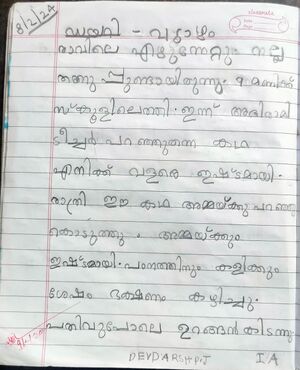 classmate
8/2/24
ഡയറി - വ്യാഴം
രാവിലെ എഴുന്നേറ്റു നല്ല
തണുപ്പുണ്ടായിരുന്നു. 9 മണിക്ക്
സ്ക്കൂളിലെത്തി. ഇന്ന് അഭിരാമി
ടീച്ചർ പറഞ്ഞുതന്ന കഥ
എനിക്ക് വളരെ ഇഷ്ടമായി.
രാത്രി ഈ കഥ അമ്മയ്ക്കു പറഞ്ഞു
കൊടുത്തു. അമ്മയ്ക്കും
ഇഷ്ടമായി. പഠനത്തിനും കളിക്കും
ശേഷം ഭക്ഷണം കഴിച്ചു.
പതിവുപോലെ ഉറങ്ങാൻ കിടന്നു
DEVDARSH P.J I A